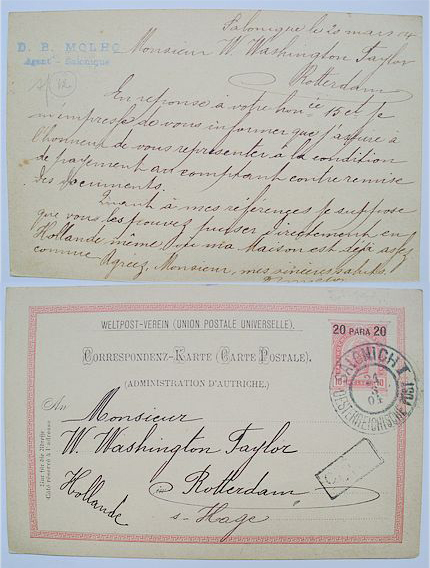 Salonique le 23 mars 04
D. B. MOLHO
Agent - Salonique
Monsieur W. Washington Taylor
Rotterdam
En réponse à votre hon.ée 15 ct je
m'empresse de vous informer que j'assure à
l'honneur de vous représenter à la condition
de payement au comptant contre remise
des documents.
Quant à mes références je suppose
que vous les pouvez puiser directement en
Hollande même où ma Maison est déjà assez
connue Agréez, Monsieur, mes sincères saluts.
WELTPOST-VEREIN (UNION POSTALE UNIVERSELLE).
20 PARA 20
CORRESPONDENZ-KARTE (CARTE POSTALE).
(ADMINISTRATION D'AUTRICHE).
10 10
SALONICH I
24
3
04
OESTERREICHISCHE
An
Nur für die Adresse
Côté réservé à l'adresse
Monsieur
W. Washington Taylor
Rotterdam
Hollande
s-Hage